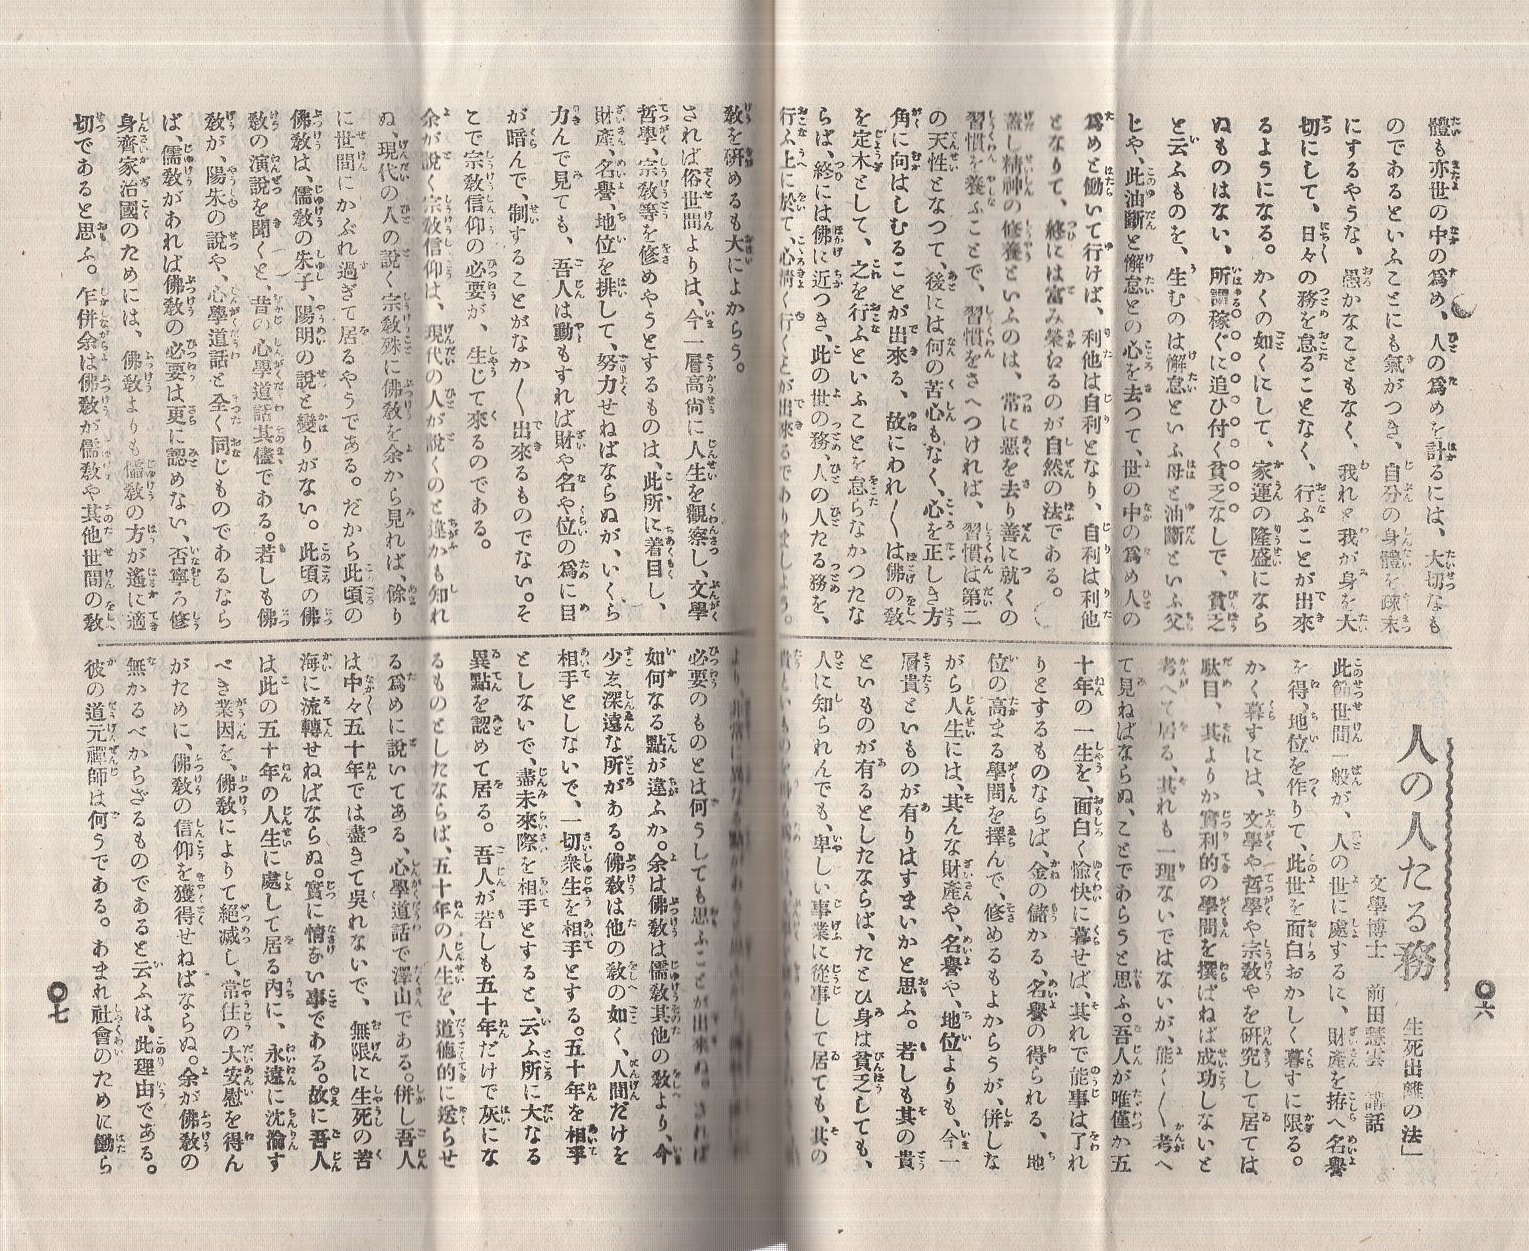 體も亦世の中の爲め、人の爲めを計るには、大切なも
のであるといふことにも氣がつき、自分の身體を疎末
にするやうな、愚かなこともなく、我れと我が身を大
切にして、日々の務を怠ることなく、行ふことが出來
るようになる。かくの如くにして、家運の隆盛になら
ぬものはない、所謂稼ぐに追ひ付く貧乏なしで、貧乏
と云ふものを、生むのは懈怠といふ母と油斷といふ父
じや、此油斷と懈怠との心を去つて、世の中の爲め人の
爲めと働いて行けば、利他は自利となり、自利は利他
となりて、終には富み榮むるのが自然の法である。
蓋し精神の修養といふのは、常に惡を去り善に就くの
習慣を養ふことで、習慣をさへつければ、習慣は第二
の天性となつて、後には何の苦心もなく、心を正しき方
角に向はしむることが出來る、故にわれ〱は佛の敎
を定木として、之を行ふといふことを怠らなかつたな
らば、終には佛に近つき、此の世の務、人の人たる務を、
行ふ上に於て、心淸く行くとが出來るでありましよう。
人の人たる務
生死出離の法」
文學博士 前田慧雲 講話
此節世間一般が、人の世に處するに、財產を拵へ名譽
を得、地位を作りて、此世を面白おかしく暮すに限る。
かく暮すには、文學や哲學や宗敎やを研究して居ては
駄目、其よりか實利的の學問を撰ばねば成功しないと
考へて居る、其れも一理ないではないが、能く〱考へ
て見ねばならぬ、ことであらうと思ふ。吾人が唯僅か五
十年の一生を、面白く愉快に暮せば、其れで能事は了れ
りとするものならば、金の儲かる、名譽の得られる、地
位の高まる學問を擇んで、修めるもよからうが、併しな
がら人生には、其んな財產や、名譽や、地位よりも、今一
層貴といものが有りはすまいかと思ふ。若しも其の貴
といものが有るとしたならば、たとひ身は貧乏しても、
人に知られんでも、卑しい事業に從事して居ても、其の
〇六
敎を硏めるも大によからう。
されば俗世間よりは、今一層高尙に人生を觀察し、文學
哲學、宗敎等を修めやうとするものは、此所に着目し、
財產、名譽、地位を排して、努力せねばならぬが、いくら
力んで見ても、吾人は動もすれば財や名や位の爲に目
が暗んで、制することがなか〱出來るものでない。そ
こで宗敎信仰の必要が、生じて來るのである。
余が說く宗敎信仰は、現代の人が說くのと違かも知れ
ぬ、現代の人の說く宗敎殊に佛敎を余から見れば、餘り
に世間にかぶれ過ぎて居るやうである。だから此頃の
佛敎は、儒敎の朱子、陽明の說と變りがない。此頃の佛
敎の演說を聞くと、昔の心學道話其儘である。若しも佛
敎が、陽朱の說や、心學道話と全く同じものであるなら
ば、儒敎があれば佛敎の必要は更に認めない、否寧ろ修
身齊家治國のためには、佛敎よりも儒敎の方が遙に適
切であると思ふ。乍併余は佛敎が儒敎や其他世間の敎
必要のものとは何うしても思ふことが出來ぬ。されば
如何なる點が違ふか。余は佛敎は儒敎其他の敎より、今
少ゑ深遠な所がある。佛敎は他の敎の如く、人間だけを
相手としないで、一切衆生を相手とする。五十年を相手
としないで、盡未來際を相手とすると、云ふ所に大なる
異點を認めて居る。吾人が若しも五十年だけで灰にな
るものとしたならば、五十年の人生を、道德的に送らせ
る爲めに說いてある、心學道話で澤山である。併し吾人
は中々五十年では盡きて吳れないで、無限に生死の苦
海に流轉せねばならぬ。實に情ない事である。故に吾人
は此の五十年の人生に處して居る內に、永遠に沈淪す
べき業因を、佛敎によりて絕滅し、常住の大安慰を得ん
がために、佛敎の信仰を獲得せねばならぬ。余が佛敎の
無かるべからざるものであると云ふは、此理由である。
彼の道元禪師は何うである。あまれ社會のために働ら
〇七